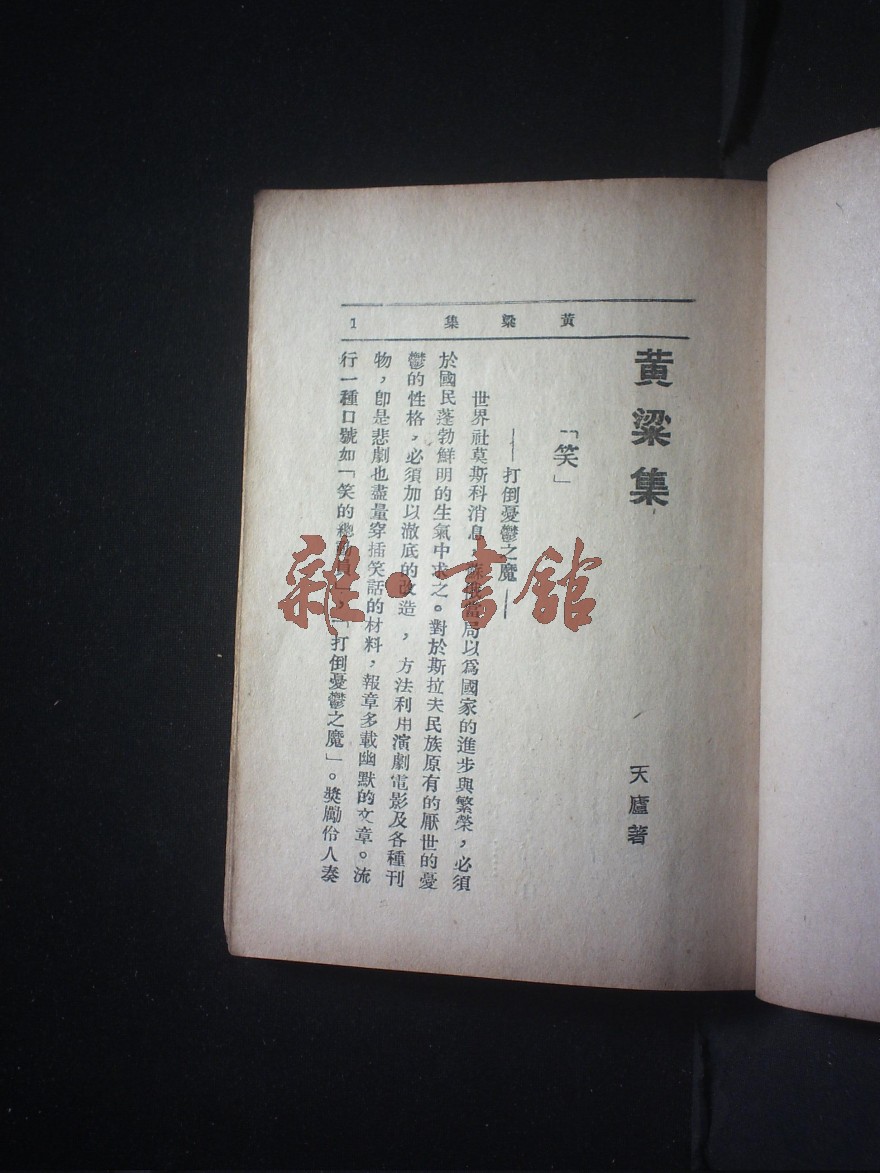 黃粱集 1
黃粱集
天廬著
「笑」
——打倒憂鬱之魔——
世界社莫斯科消息 蘇俄當局以爲國家的進步與繁榮，必須
於國民蓬勃鮮明的生氣中求之。對於斯拉夫民族原有的厭世的憂
鬱的性格，必須加以澈底的改造，方法利用演劇電影及各種刊
物，卽是悲劇也盡量穿插笑話的材料，報章多載幽默的文章。流
行一種口號如「笑的總動員」，「打倒憂鬱之魔」。獎勵伶人奏
雜·書館